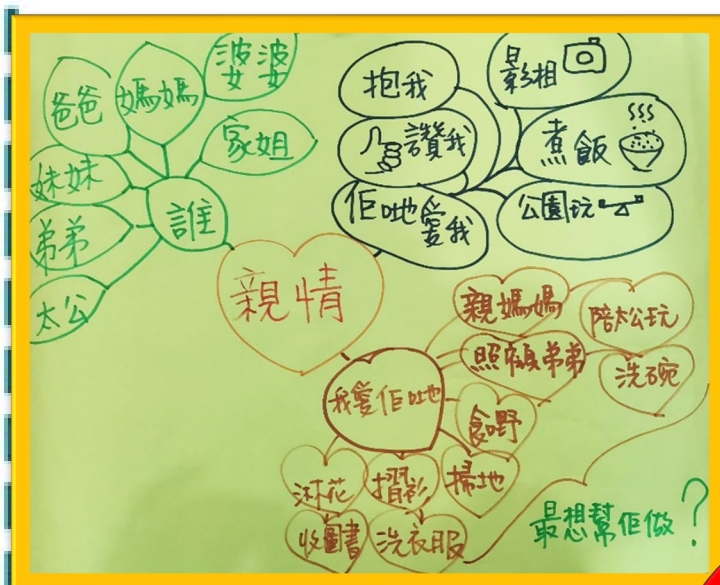 親情
誰
婆婆
媽媽
爸爸
家姐
妹妹
弟弟
太公
佢哋愛我
讚我
抱我
影相
煮飯
公園玩
我愛佢哋
親媽媽
陪太公玩
照顧弟弟
洗碗
食嘢
掃地
摺衫
洗衣服
淋花
收圖書
最想幫佢做？